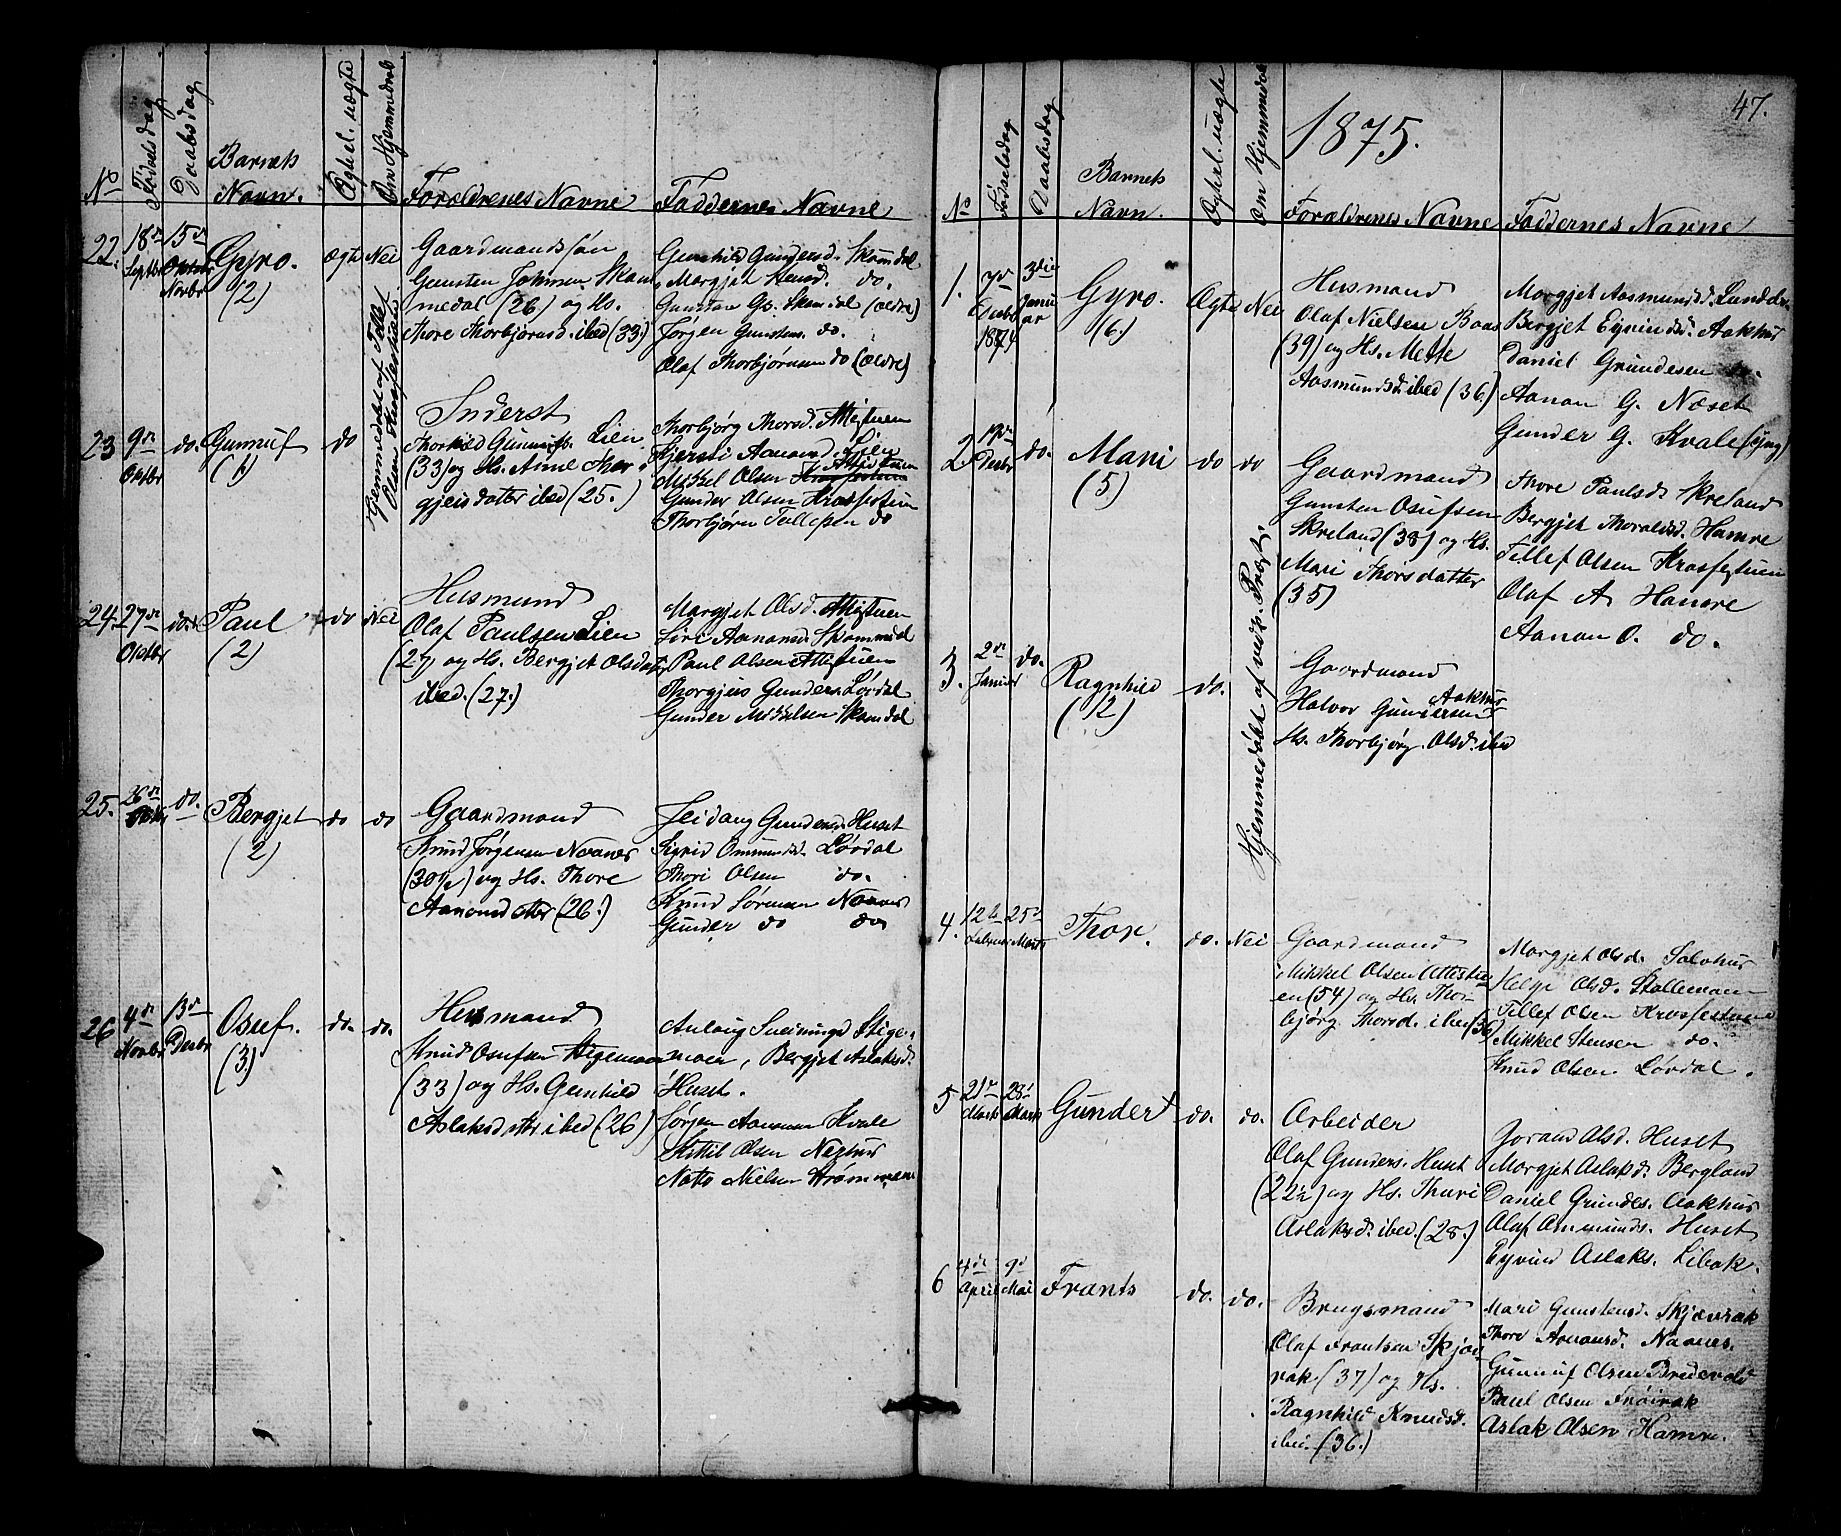 No
Fødselsdag
Daabsdag
Barnets
Navn.
Ægte el. uægte
Om Hjemmedøbt
Forældrenes Navne
Faddernes Navne
22.
18de
Septbr
15de
Novbr
Gyro.
(2)
Ægte
Nei
Gaardmandssøn
Gunsten Johnsen Skom-
medal (26) og Hs.
Thore Thorbjørnsd. ibed (33)
Gunhild Gundersd. Skomdal
Margjet do.
Gunsten Skomdal (ældre)
Jørgen Gunstens. do.
Olaf Thorbjørnsen do (ældre)
23
9de
Oktbr
do.
Gunnuf
(1)
do
Hjemmedøbt af Tellef
Olsen Krosfestuen
Inderst
Thorkild Gunnufs. Lien
(33) og Hs. Anne Thor-
gjeisdatter ibed (25.)
Thorbjørg Thorsd. Attistuen
Aanonsd. Lien
Mikkel Olsen Attistuen
Gunder Olsen Krosfestuen
Thorbjørn Tellefsen do
24.
27de
Oktbr
do.
Paul
(2)
do
Nei
Husmand
Olaf Paulsen Lien
(27) og Hs. Bergjet Olsdatter
ibed. (27.)
Margjet Olsd. Attistuen
Siri Aanonsd. Skommedal
Paul Olsen Attistuen
Thorgjus Gunders. Lørdal
Gunder Mikkelsen Skomdal
25.
26de
Oktbr
do.
Bergjet
(2)
do
do
Gaardmand
Knud Jørgensen Naanes
(30½) og Hs. Thore
Aanonsdatter (26.)
Gundersd. Huset
Sigrid Ommundsd. Lørdal
Olsen do.
Knud Sørensen Naanes
Gunder do do
26
4de
Novbr
13de
Decbr
Osuf.
(3)
do.
do.
Husmand
Knud Osufsen Stigemoen
(33) og Hs. Gunhild
Aslaksdatter ibed (26)
Anlaug Sveinungsd. Stige-
moen, Bergjet Aslaksd.
Huset.
Jørgen Aanonsen Kvale
Kittil Olsen
Nielsen Strømmen
47.
1875.
No
Fødselsdag
Daabsdag
Barnets
Navn.
Ægte el. uægte
Om Hjemmedøbt
Forældrenes Navne
Faddernes Navne
1.
7de
Decbr
1874
3die
Januar
Gyro.
(6.)
Ægte
Nei
Husmand
Olaf Nielsen Baas
(39) og Hs. Mette
Aasmundsd. ibed (36.)
Margjet Aasmundsd.
Bergjet Eyvindsd. Aakhus
Daniel Grundesen do.
Aanon G. Næset
Gunder G. Kvale (yng)
2.
19de
Decbr
do.
Mari
(5)
do
do
Gaardmand
Gunsten Osufsen
Skreland (38) og Hs.
Mari Thorsdatter
(35)
Thore Paulsd. Skreland
Bergjet Thoraldsd. Hamre
Tellef Olsen Krosfestuen
Olaf A. Hamre
Aanon O. do.
3.
2de
Januar
do.
Ragnhild
(2)
do.
Gaardmand
Aakhus
Halvor Gundersen
Hs. Thorbjørg Olsd. ibed
4.
12te
25de
Marts
Thor.
do.
Nei
Gaardmand
Mikkel Olsen Attistu-
en (54) og Hs. Thor-
bjørg Thorsd. ibed (36)
Margjet Olsd.
Helge Olsd. Stallemoen
Tellef Olsen Krosfestuen
Mikkel Stensen do.
Knud Olsen Lørdal.
5
21de
Marts
28de
Marts
Gunder
do.
do.
Arbeider
Olaf Gunders. Huset
(22½) og Hs. Thuri
Aslaksd. ibed. (28.)
Jorand Olsd. Huset
Margjet Aslaksd. Bergland
Daniel Grundes. Aakhus
Olaf Ommunds. Huset
Eyvind Aslaks. Libak.
6
4de
April
9de
Mai
Frants
do.
do.
Brugsmand
Olaf Frantsen Skjæv-
rak. (37) og Hs.
Ragnhild Knudsd.
ibed. (36.)
Mari Gunstensd. Skjævrak
Thore Aanonsd. Naanes.
Gunnuf Olsen Bredevold
Paul Olsen Frøirak
Aslak Olsen Hamre.